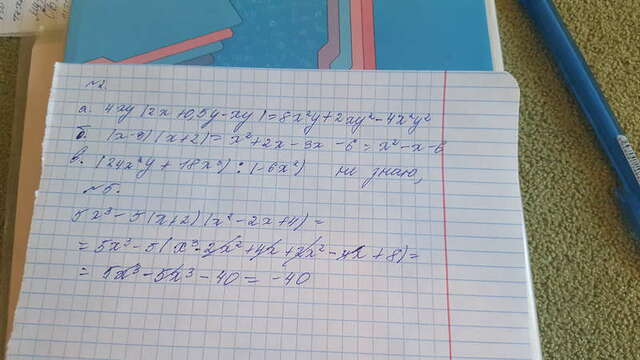 №2.
а. 4xy(2x+0,5y-xy)=8x²y+2xy²-4x²y²
б. (x-3)(x+2)=x²+2x-3x-6=x²-x-6
в. (24x²y+18x³):(-6x²) не знаю,
№5.
5x³-5(x+2)(x²-2x+4)=
=5x³-5(x³-2x²+4x+2x²-4x+8)=
=5x³-5x³-40=-40